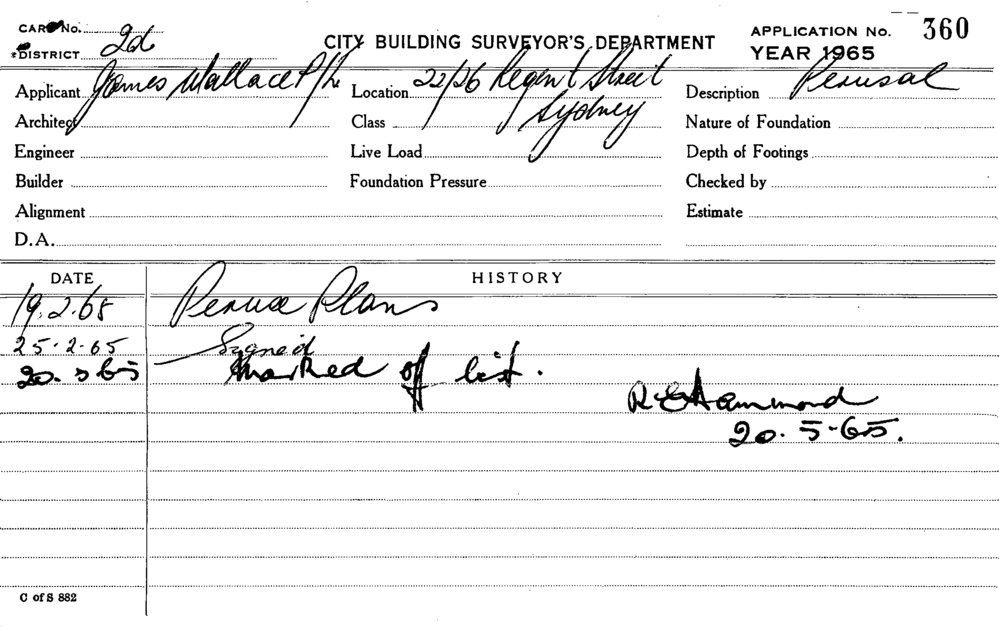 CARD No. 2d
*DISTRICT
CITY BUILDING SURVEYOR'S DEPARTMENT
APPLICATION No. 360
YEAR 1965
Applicant James Wallace P/L Location 22/26 Regent Street Sydney Description Perusal
Architect Class Nature of Foundation
Engineer Live Load Depth of Footings
Builder Foundation Pressure Checked by
Alignment Estimate
D.A.
DATE HISTORY
19.2.65 Peruse Plans
25.2.65 Signed
20.5.65 Marked off list.
R E Hammond
20.5.65.
C of S 882